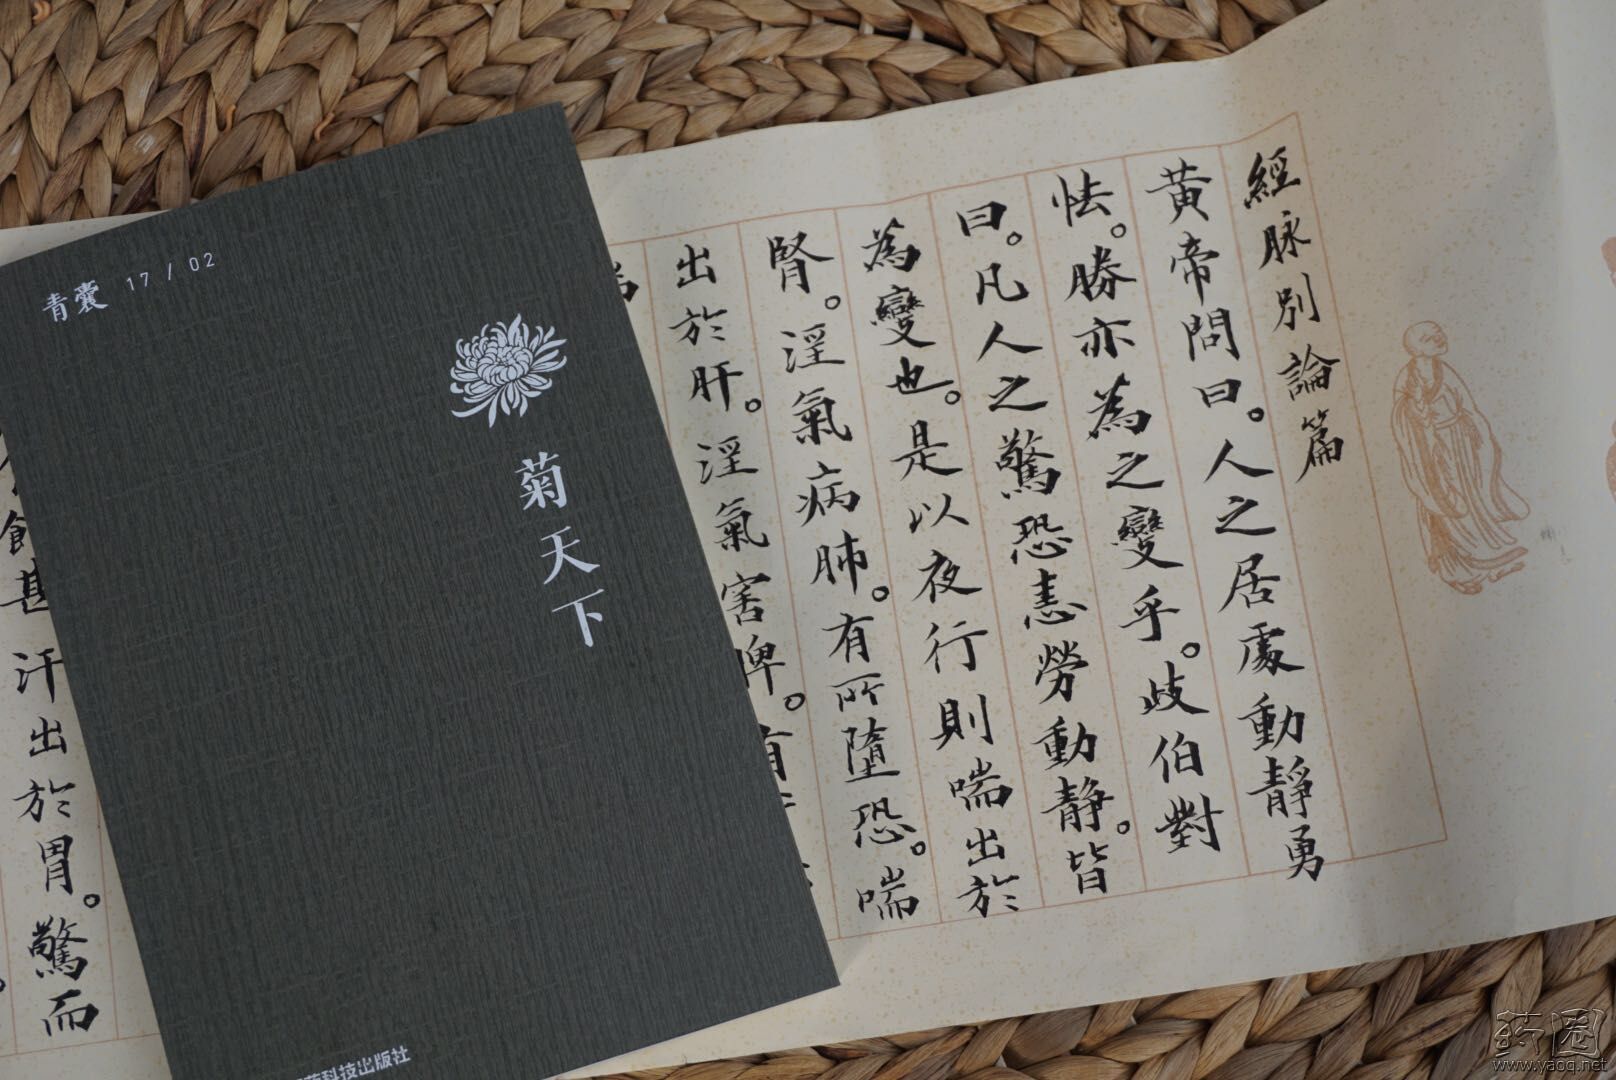 經脉別論篇
黃帝問曰。人之居處動靜勇
怯。脉亦為之變乎。歧伯對
曰。凡人之驚恐恚勞動靜。皆
為變也。是以夜行則喘出於
腎。淫氣病肺。有所墮恐。喘
出於肝。淫氣害脾。有
甚
汗出於胃。驚而
青囊 17 / 02
菊天下
科技出版社
药圈
www.yaoq.net